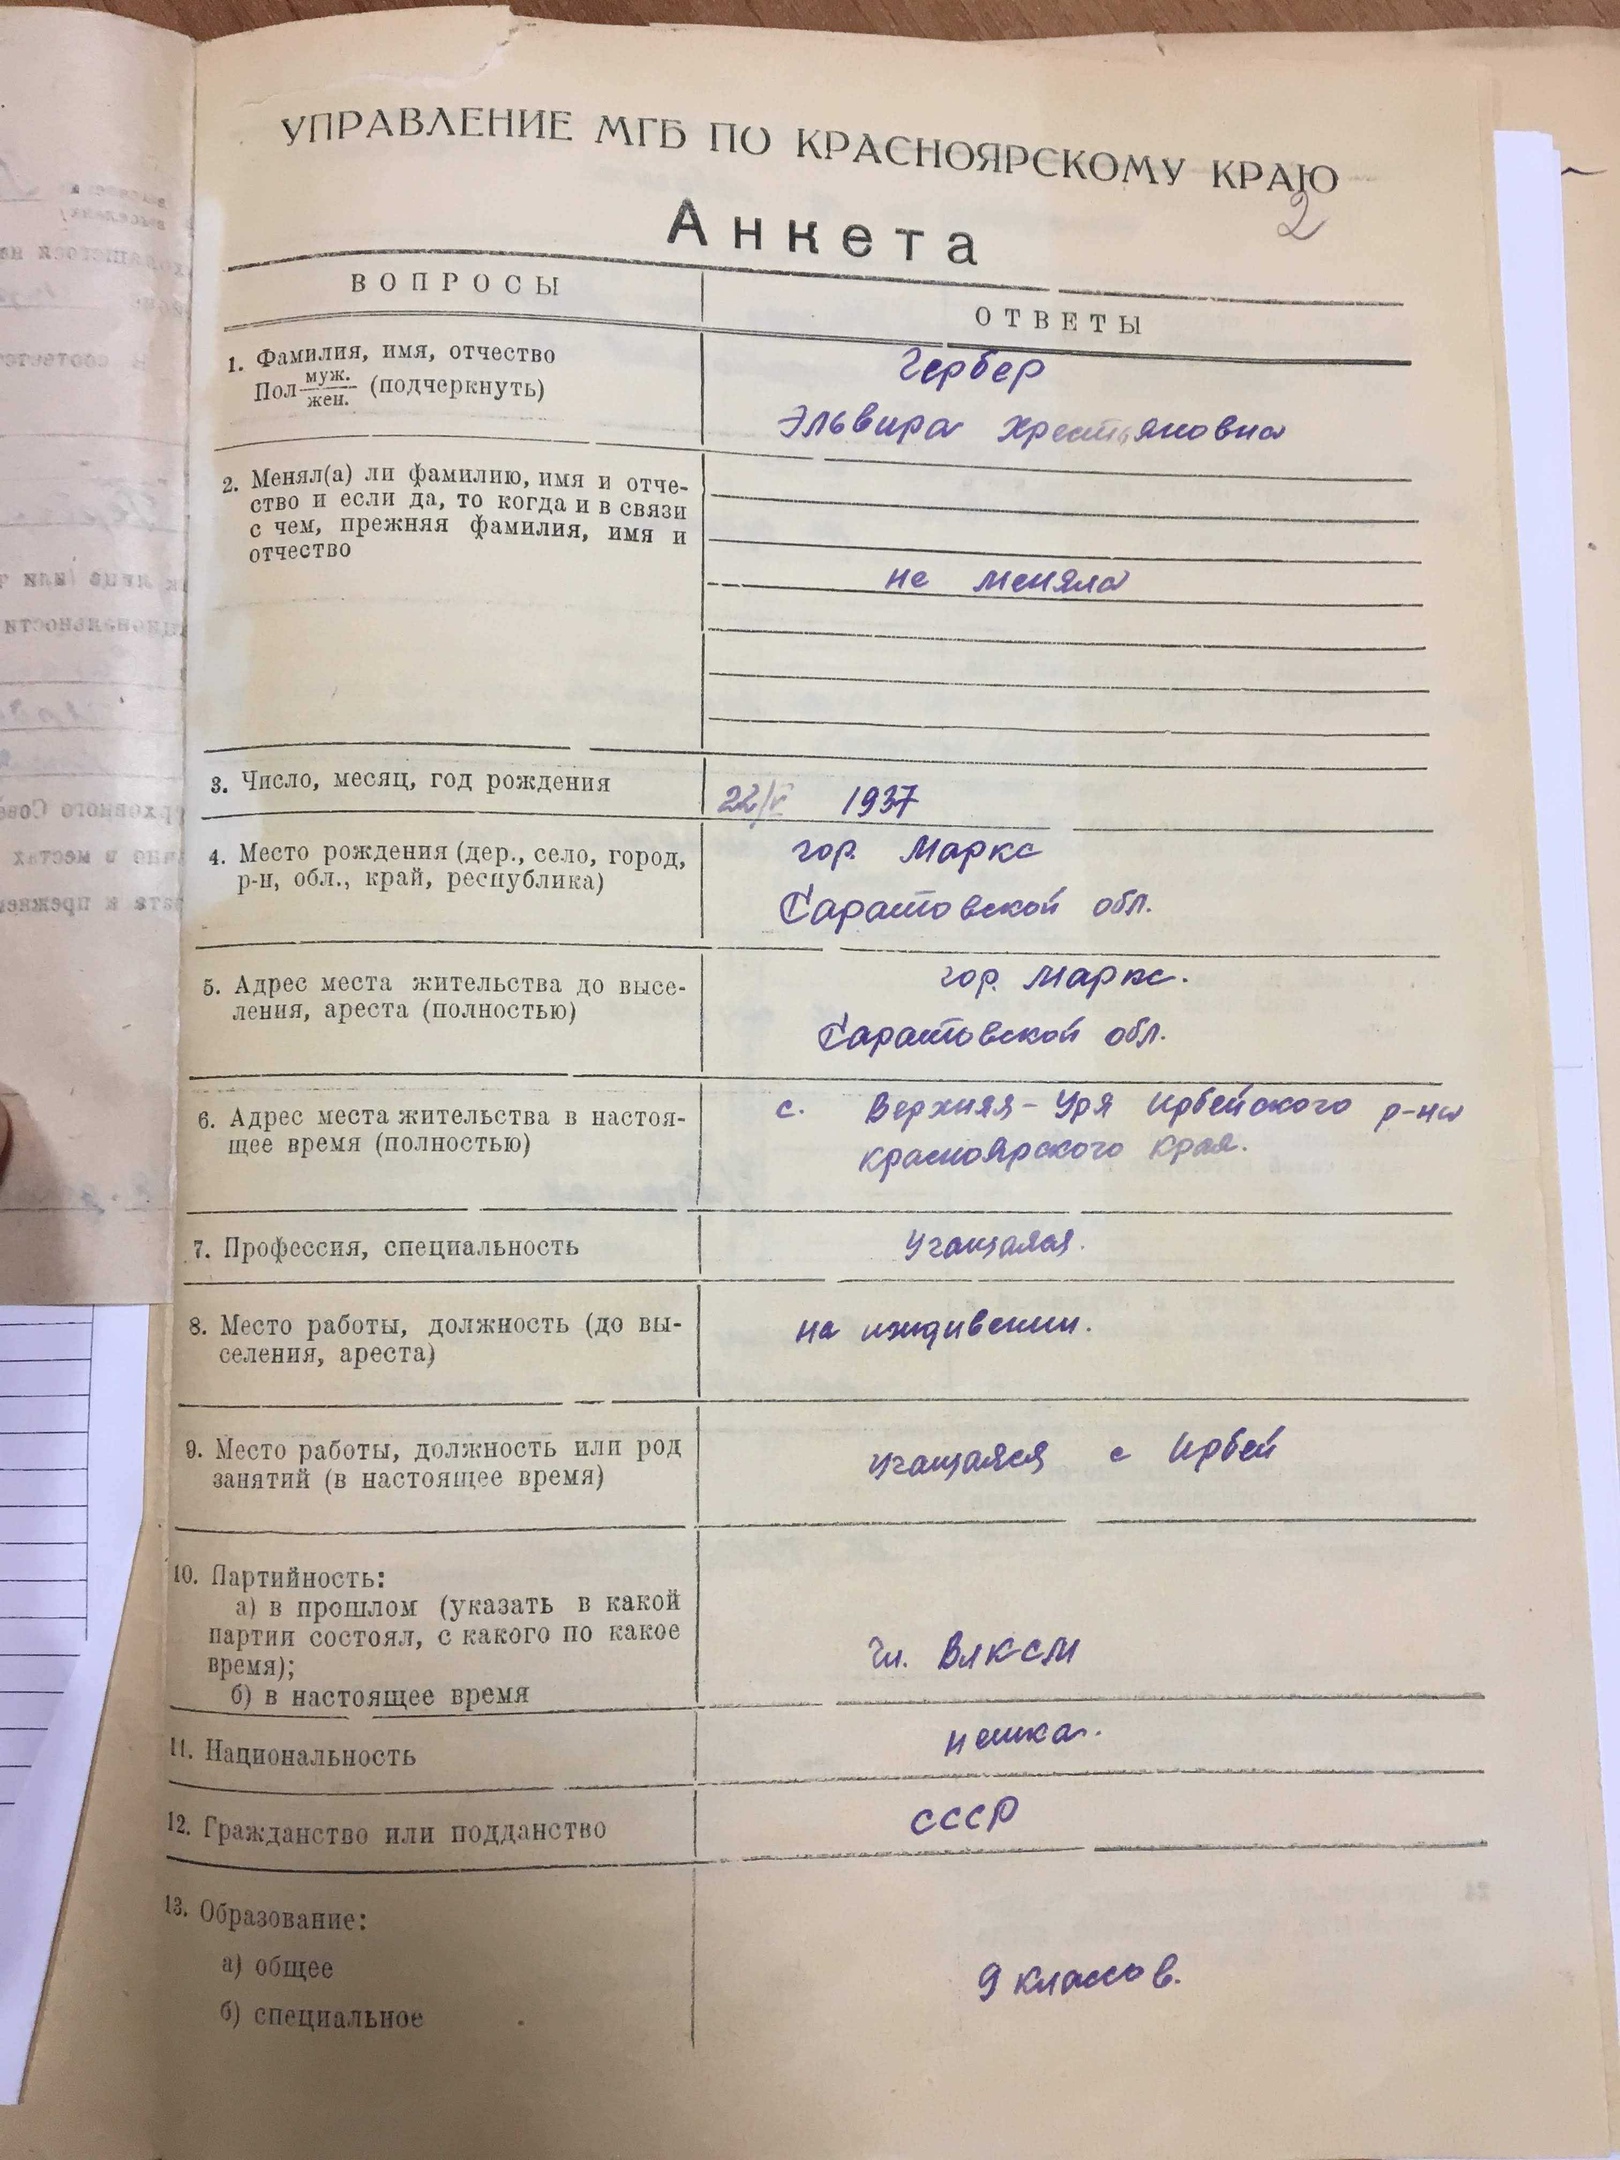 УПРАВЛЕНИЕ МГБ ПО КРАСНОЯРСКОМУ КРАЮ
2
Анкета
ВОПРОСЫ
ОТВЕТЫ
1. Фамилия, имя, отчество
Пол муж. жен. (подчеркнуть)
Гербер
Эльвира Хрестьяновна
2. Менял(а) ли фамилию, имя и отче-
ство и если да, то когда и в связи
с чем, прежняя фамилия, имя и
отчество
не меняла
3. Число, месяц, год рождения
22/V 1937
4. Место рождения (дер., село, город,
р-н, обл., край, республика)
гор. Маркс
Саратовской обл.
5. Адрес места жительства до высе-
ления, ареста (полностью)
гор. Маркс.
Саратовской обл.
6. Адрес места жительства в настоя-
щее время (полностью)
с. Верхняя-Уря Ирбейского р-на
красноярского края.
7. Профессия, специальность
Учащаяся.
8. Место работы, должность (до вы-
селения, ареста)
на иждивении.
9. Место работы, должность или род
занятий (в настоящее время)
учащаяся с Ирбей
10. Партийность:
а) в прошлом (указать в какой
партии состоял, с какого по какое
время);
б) в настоящее время
Чл. ВЛКСМ
11. Национальность
немка.
12. Гражданство или подданство
СССР
13. Образование:
а) общее
б) специальное
9 классов.